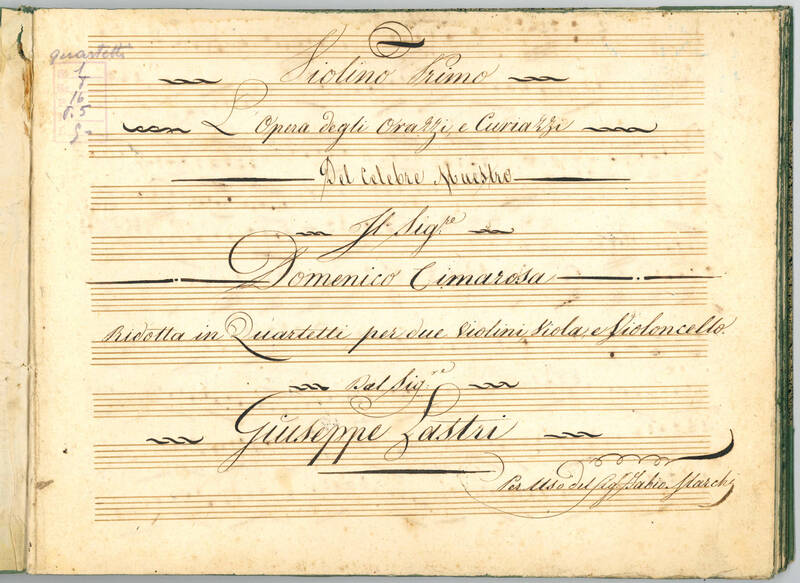 quartetti
1
8
16
5
Violino Primo
L'Opera degli Orazzi, e Curiazzi
Del Celebre Maestro
Il Sig.re
Domenico Cimarosa
Ridotta in Quartetti per due Violini Viola, e Violoncello
Dal Sig.re
Giuseppe Lastri
Per Uso del Sig. Fabio Marchi